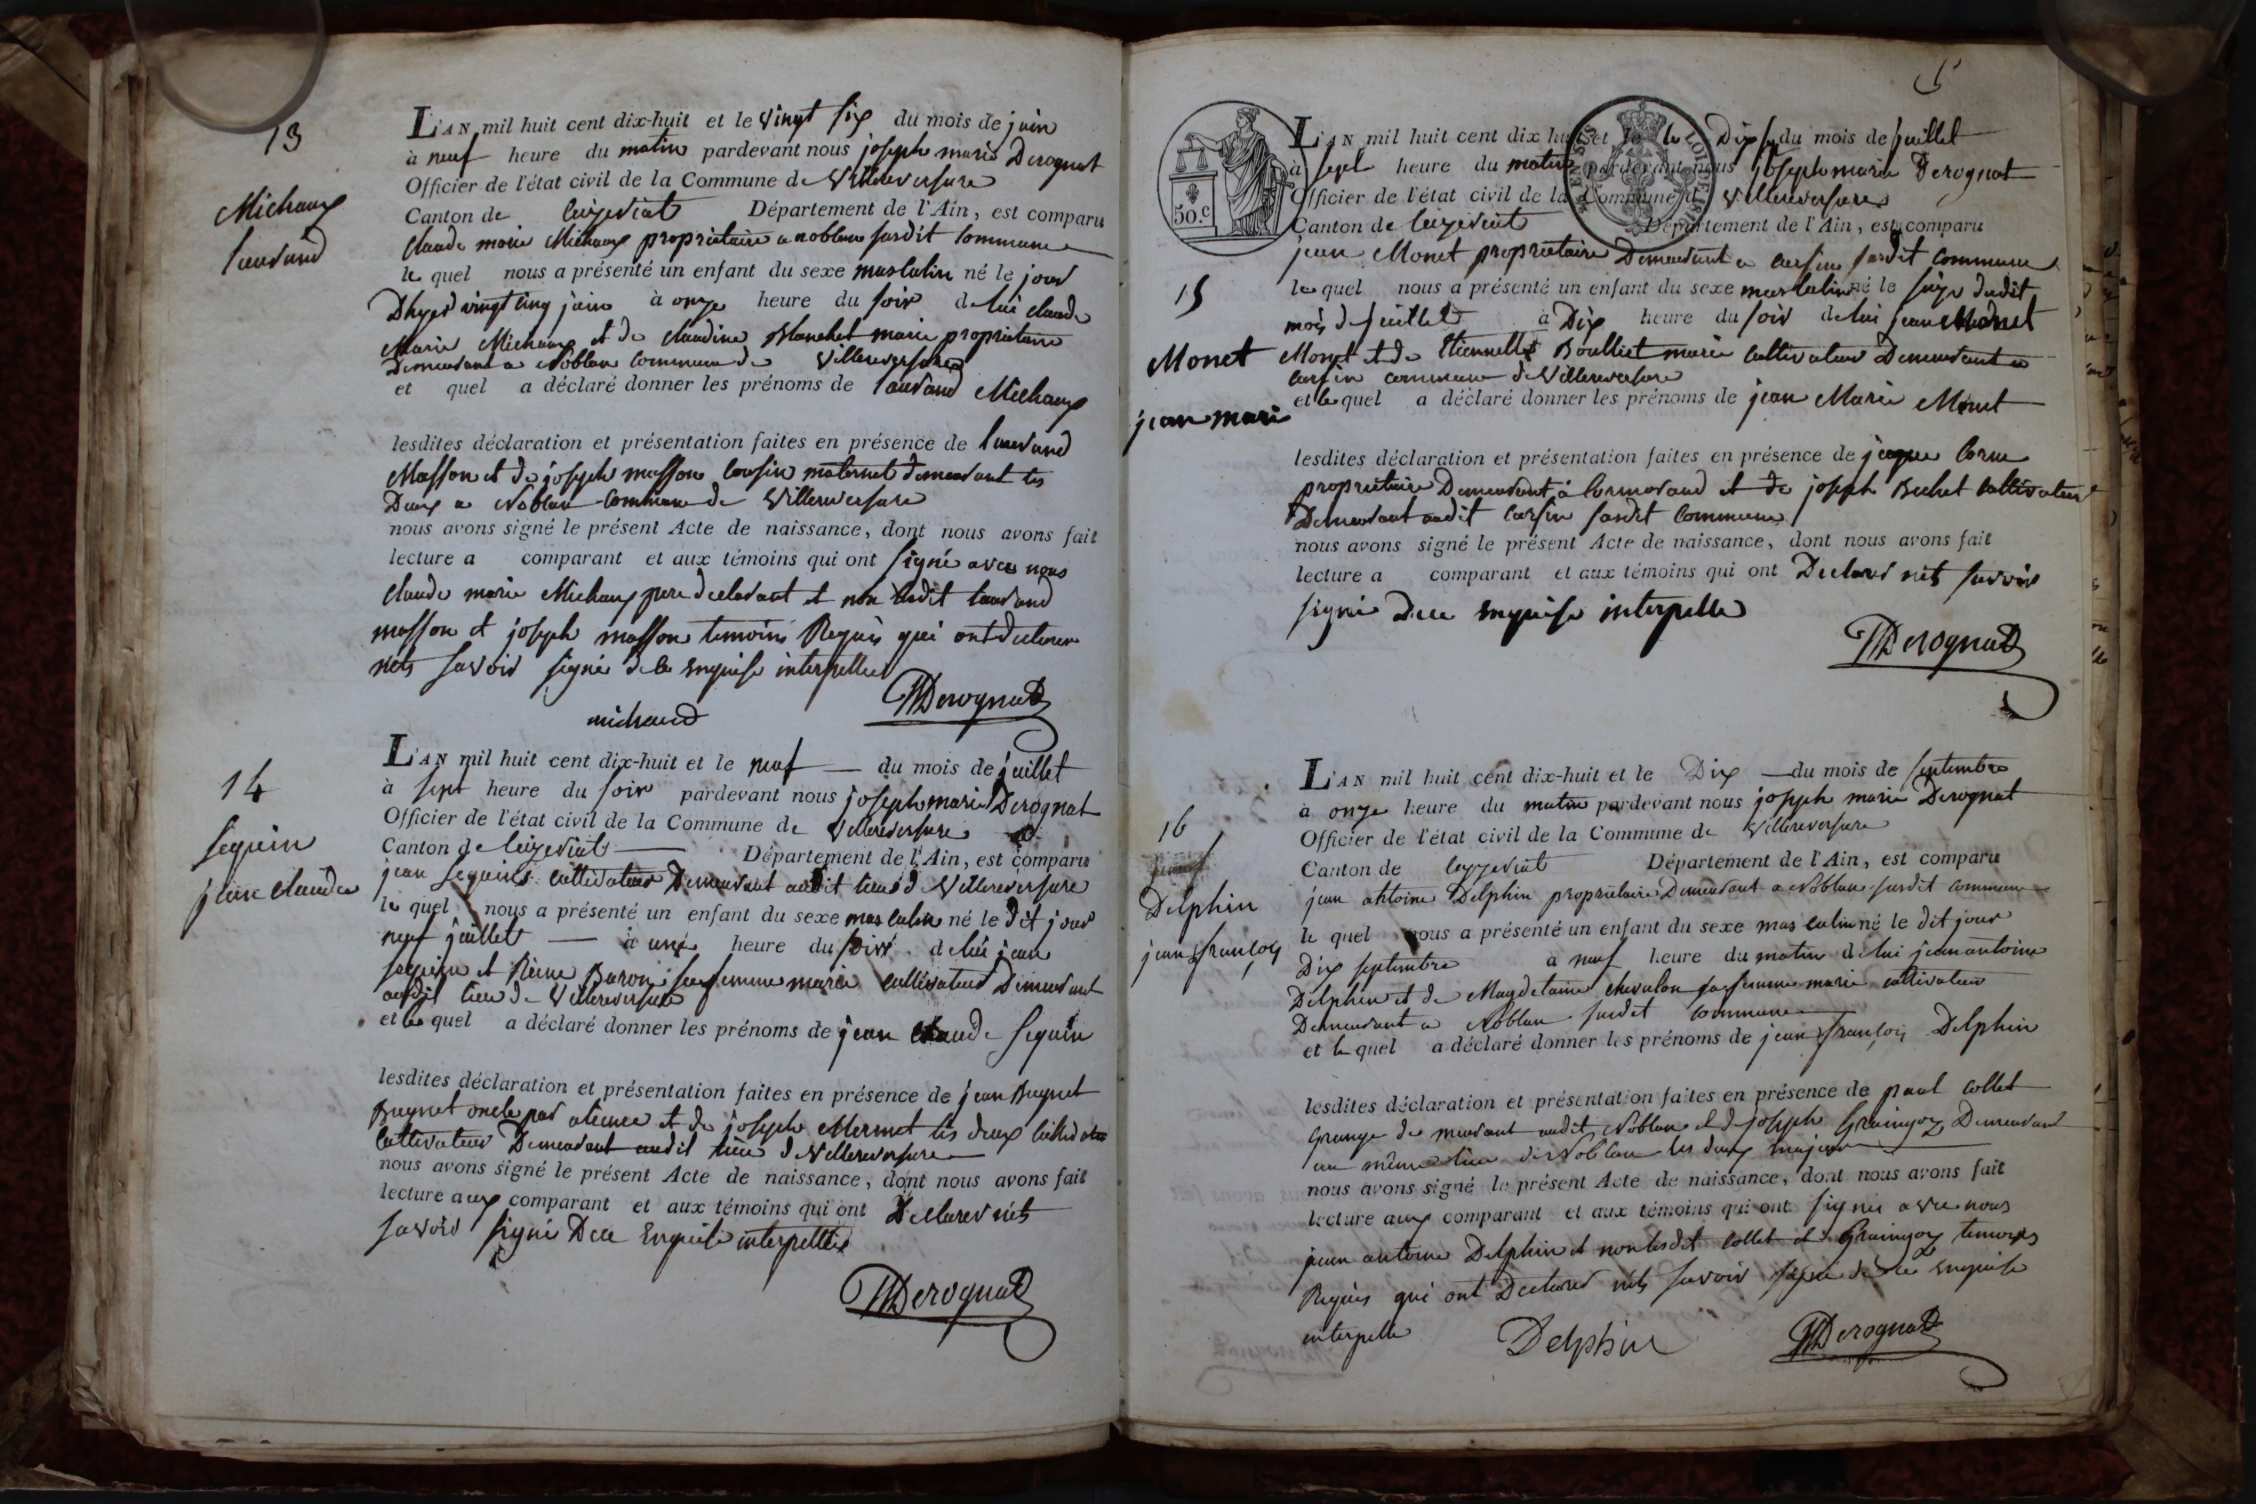 13
Michaux
Laurand
L'AN mil huit cent dix-huit et le vingt six du mois de juin
à neuf heure du matin pardevant nous joseph marie Derognat
Officier de l'état civil de la Commune de Villereversure
Canton de Ceizeriat Département de l'Ain, est comparu
claude marie Michaux propriétaire a noblan susdit commune
le quel nous a présenté un enfant du sexe masculin né le jour
Dhyer vingt cinq juin à onze heure du soir de lui claude
Marie Michaux et de claudine Blanchet marie propriétaire
Demeurant a Noblan commune de Villereversure
et quel a déclaré donner les prénoms de Laurand Michaux
lesdites déclaration et présentation faites en présence de Laurand
Masson et de joseph masson cousin maternel demeurant les
Deux a Noblan commune de Villereversure
nous avons signé le présent Acte de naissance, dont nous avons fait
lecture a comparant et aux témoins qui ont signé avec nous
claude marie Michaux pere declarant et non lesdit Laurand
masson et joseph masson temoins Requis qui ont declarer
nets savoir signé de ce enquise interpellee
michaud
JMDerognat
14
Seguin
jean claude
L'AN mil huit cent dix-huit et le neuf du mois de juillet
à sept heure du soir pardevant nous joseph marie Derognat
Officier de l'état civil de la Commune de Villereversure
Canton de Ceizeriat Département de l'Ain, est comparu
jean Seguin cultivateur Demeurant audit lieu d Villereversure
le quel nous a présenté un enfant du sexe masculin né le dit jour
neuf juillet à une heure du soir de lui jean
seguin et Reine Buron sa femme marié cultivateur Demeurant
audit lieu de Villereversure
et le quel a déclaré donner les prénoms de jean claude Seguin
lesdites déclaration et présentation faites en présence de jean Buynet
Buynet oncle par alience et de joseph Mermet les deux
cultivateur Demeurant audit lieu d Villereversure
nous avons signé le présent Acte de naissance, dont nous avons fait
lecture aux comparant et aux témoins qui ont Declarer nets
savoir signé Dece Enquise interpellée
JMDerognat
15
Monet
jean marie
50.c
L'AN mil huit cent dix huit et le Dix sep du mois de juillet
à sept heure du matin pardevant nous joseph marie Derognat
Officier de l'état civil de la Commune d Villereversure
Canton de Ceizeriat Département de l'Ain, est comparu
jean Monet propriétaire Demeurant a cursin susdit commune
le quel nous a présenté un enfant du sexe masculin né le seize dudit
mois d juillet à Dix heure du soir de lui jean Monet
Monet et de Etiennette Boulliet marie cultivateur Demeurant a
cursin commune de Villereversure
et le quel a déclaré donner les prénoms de jean Marie Monet
lesdites déclaration et présentation faites en présence de jaque Corne
propriétaire Demeurant à Cormorand et de joseph Bechet cultivateur
Demeurant audit cursin susdit commune
nous avons signé le présent Acte de naissance, dont nous avons fait
lecture a comparant et aux témoins qui ont Declarer nets savoir
signé Dece enquise interpelle
JMDerognat
16
Delphin
jean françois
L'AN mil huit cent dix-huit et le Dix du mois de septembre
à onze heure du matin pardevant nous joseph marie Derognat
Officier de l'état civil de la Commune de Villereversure
Canton de Ceyzeriat Département de l'Ain, est comparu
jean antoine Delphin propriétaire Demeurant a Noblan susdit commune
le quel nous a présenté un enfant du sexe masculin né le dit jour
Dix septembre à neuf heure du matin de lui jean antoine
Delphin et de Magdelaine chevalon sa femme marie cultivateur
Demeurant a Noblan susdit commune
et le quel a déclaré donner les prénoms de jean françois Delphin
lesdites déclaration et présentation faites en présence de paul collet
Grange demeurant audit Noblan et d joseph Grainjoz Demeurant
au même lieu de Noblan les deux majeur
nous avons signé le présent Acte de naissance, dont nous avons fait
lecture aux comparant et aux témoins qui ont signés avec nous
jean antoine Delphin et non lesdit collet et Grainjoz temoins
Requis qui ont Declarer nets savoir signé de ce enquise
interpelle
Delphin
JMDerognat